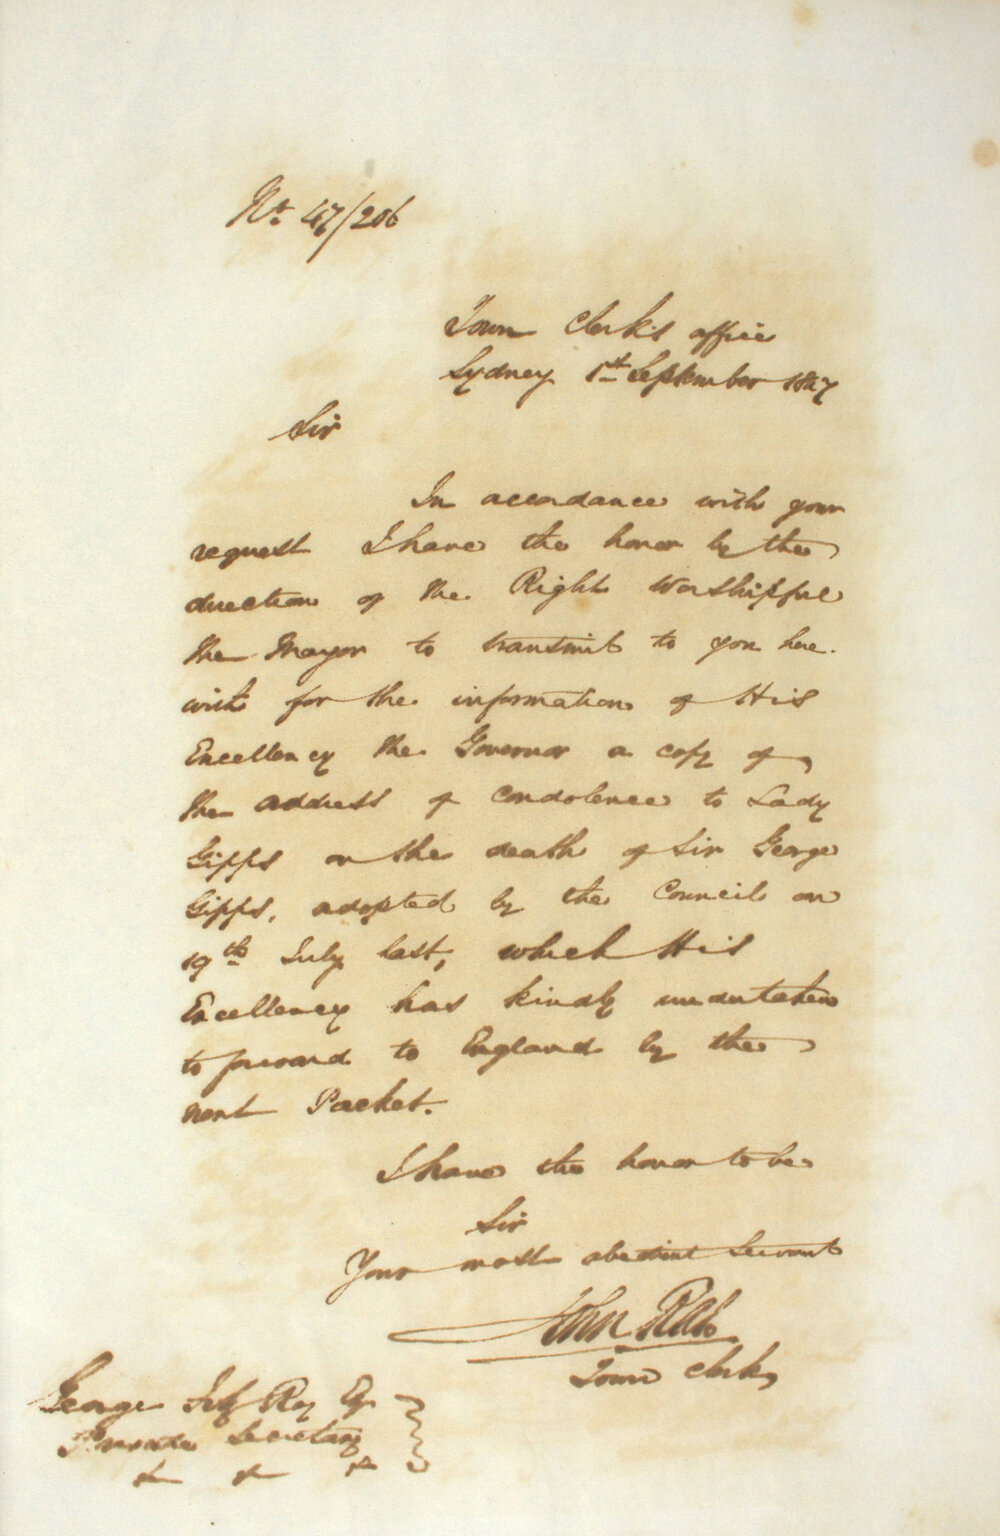 No. 47/206
Town Clerk's office
Sydney 1st September 1847
Sir
In accordance with your
request I have the honor by the
direction of the Right Worshipful
the Mayor to transmit to you here-
with for the information of His
Excellency the Governor a copy of
the address of condolence to Lady
Gipps on the death of Sir George
Gipps, adopted by the Council on
19th July last, which His
Excellency has kindly undertaken
to forward to England by the
next Packet.
I have the honor to be
Sir
Your most obedient Servant
John Rae
Town Clerk
George Fitz Roy Esq
Private Secretary
& & &